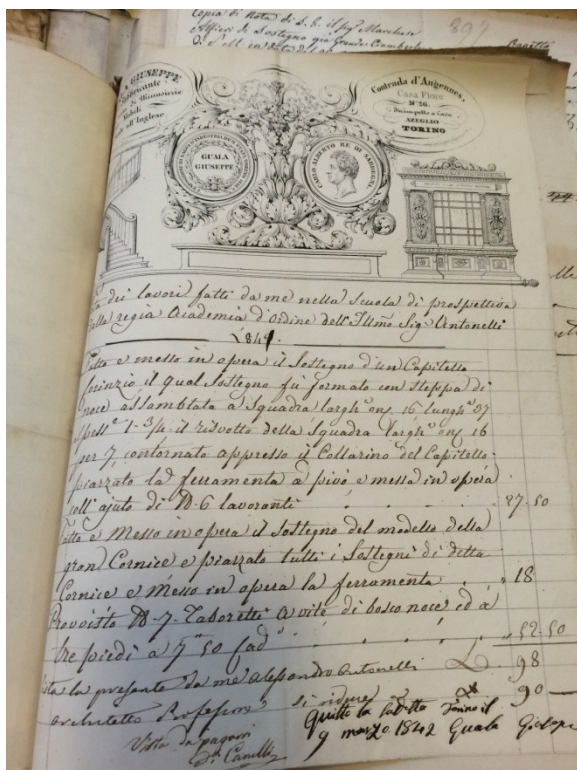 Copia di Nota di S. E. il sig.r Marchese
Alfieri di Sostegno già Grande Ciamberlano
397
GIUSEPPE
Fabbricante
di Ebanisterie
Mobili
all'Inglese
Contrada d'Angennes,
Casa Fiore
N.º 26.
Dirimpetto a Casa
AZEGLIO
TORINO
GUALA
GIUSEPPE
CARLO ALBERTO RE DI SARDEGNA
dei lavori fatti da me nella scuola di prospettiva
dalla regia Academia d'ordine dell'Illmo Sig. Antonelli
1841.
Fatto e messo in opera il Sostegno d'un Capitello
corinzio il qual Sostegno fù formato con steppa di
noce assamblata a Squadra largh.ª onz 16 lungh.ª 37
spess.ª 1-3/4 il risvolto della Squadra largh.ª onz 16
per 7, contornato appresso il Collarino del Capitello
piazzato la ferramenta a pivò e messa in opera
coll'ajuto di N. 6 lavoranti 27.50
Fatto e Messo in opera il Sostegno del modello della
gran Cornice e piazzato tutti i Sostegni di detta
Cornice e Messo in opera la ferramenta 18
Provvisto N. 7. Taboretti a vite di bosco noce ed à
tre piedi a 7 50 cad.º 52.50
Vista la presente da me Alessandro Antonelli L. 98
architetto Professore si riduce a 90
Visto da pagarsi
Quitto la sudetta Torino il
9 marzo 1842 Guala Giuseppe